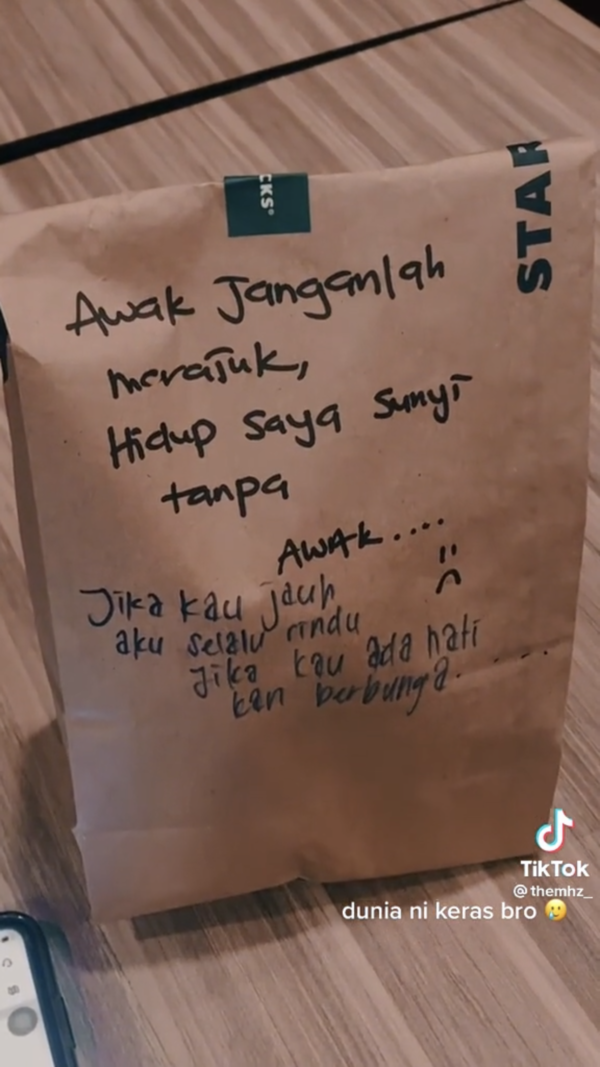 CKS®
STAR
Awak Janganlah
merajuk,
Hidup saya sunyi
tanpa
AWAK....
Jika kau jauh
aku selalu rindu
Jika kau ada hati
kan berbunga.....
TikTok
@themhz_
dunia ni keras bro 🥲